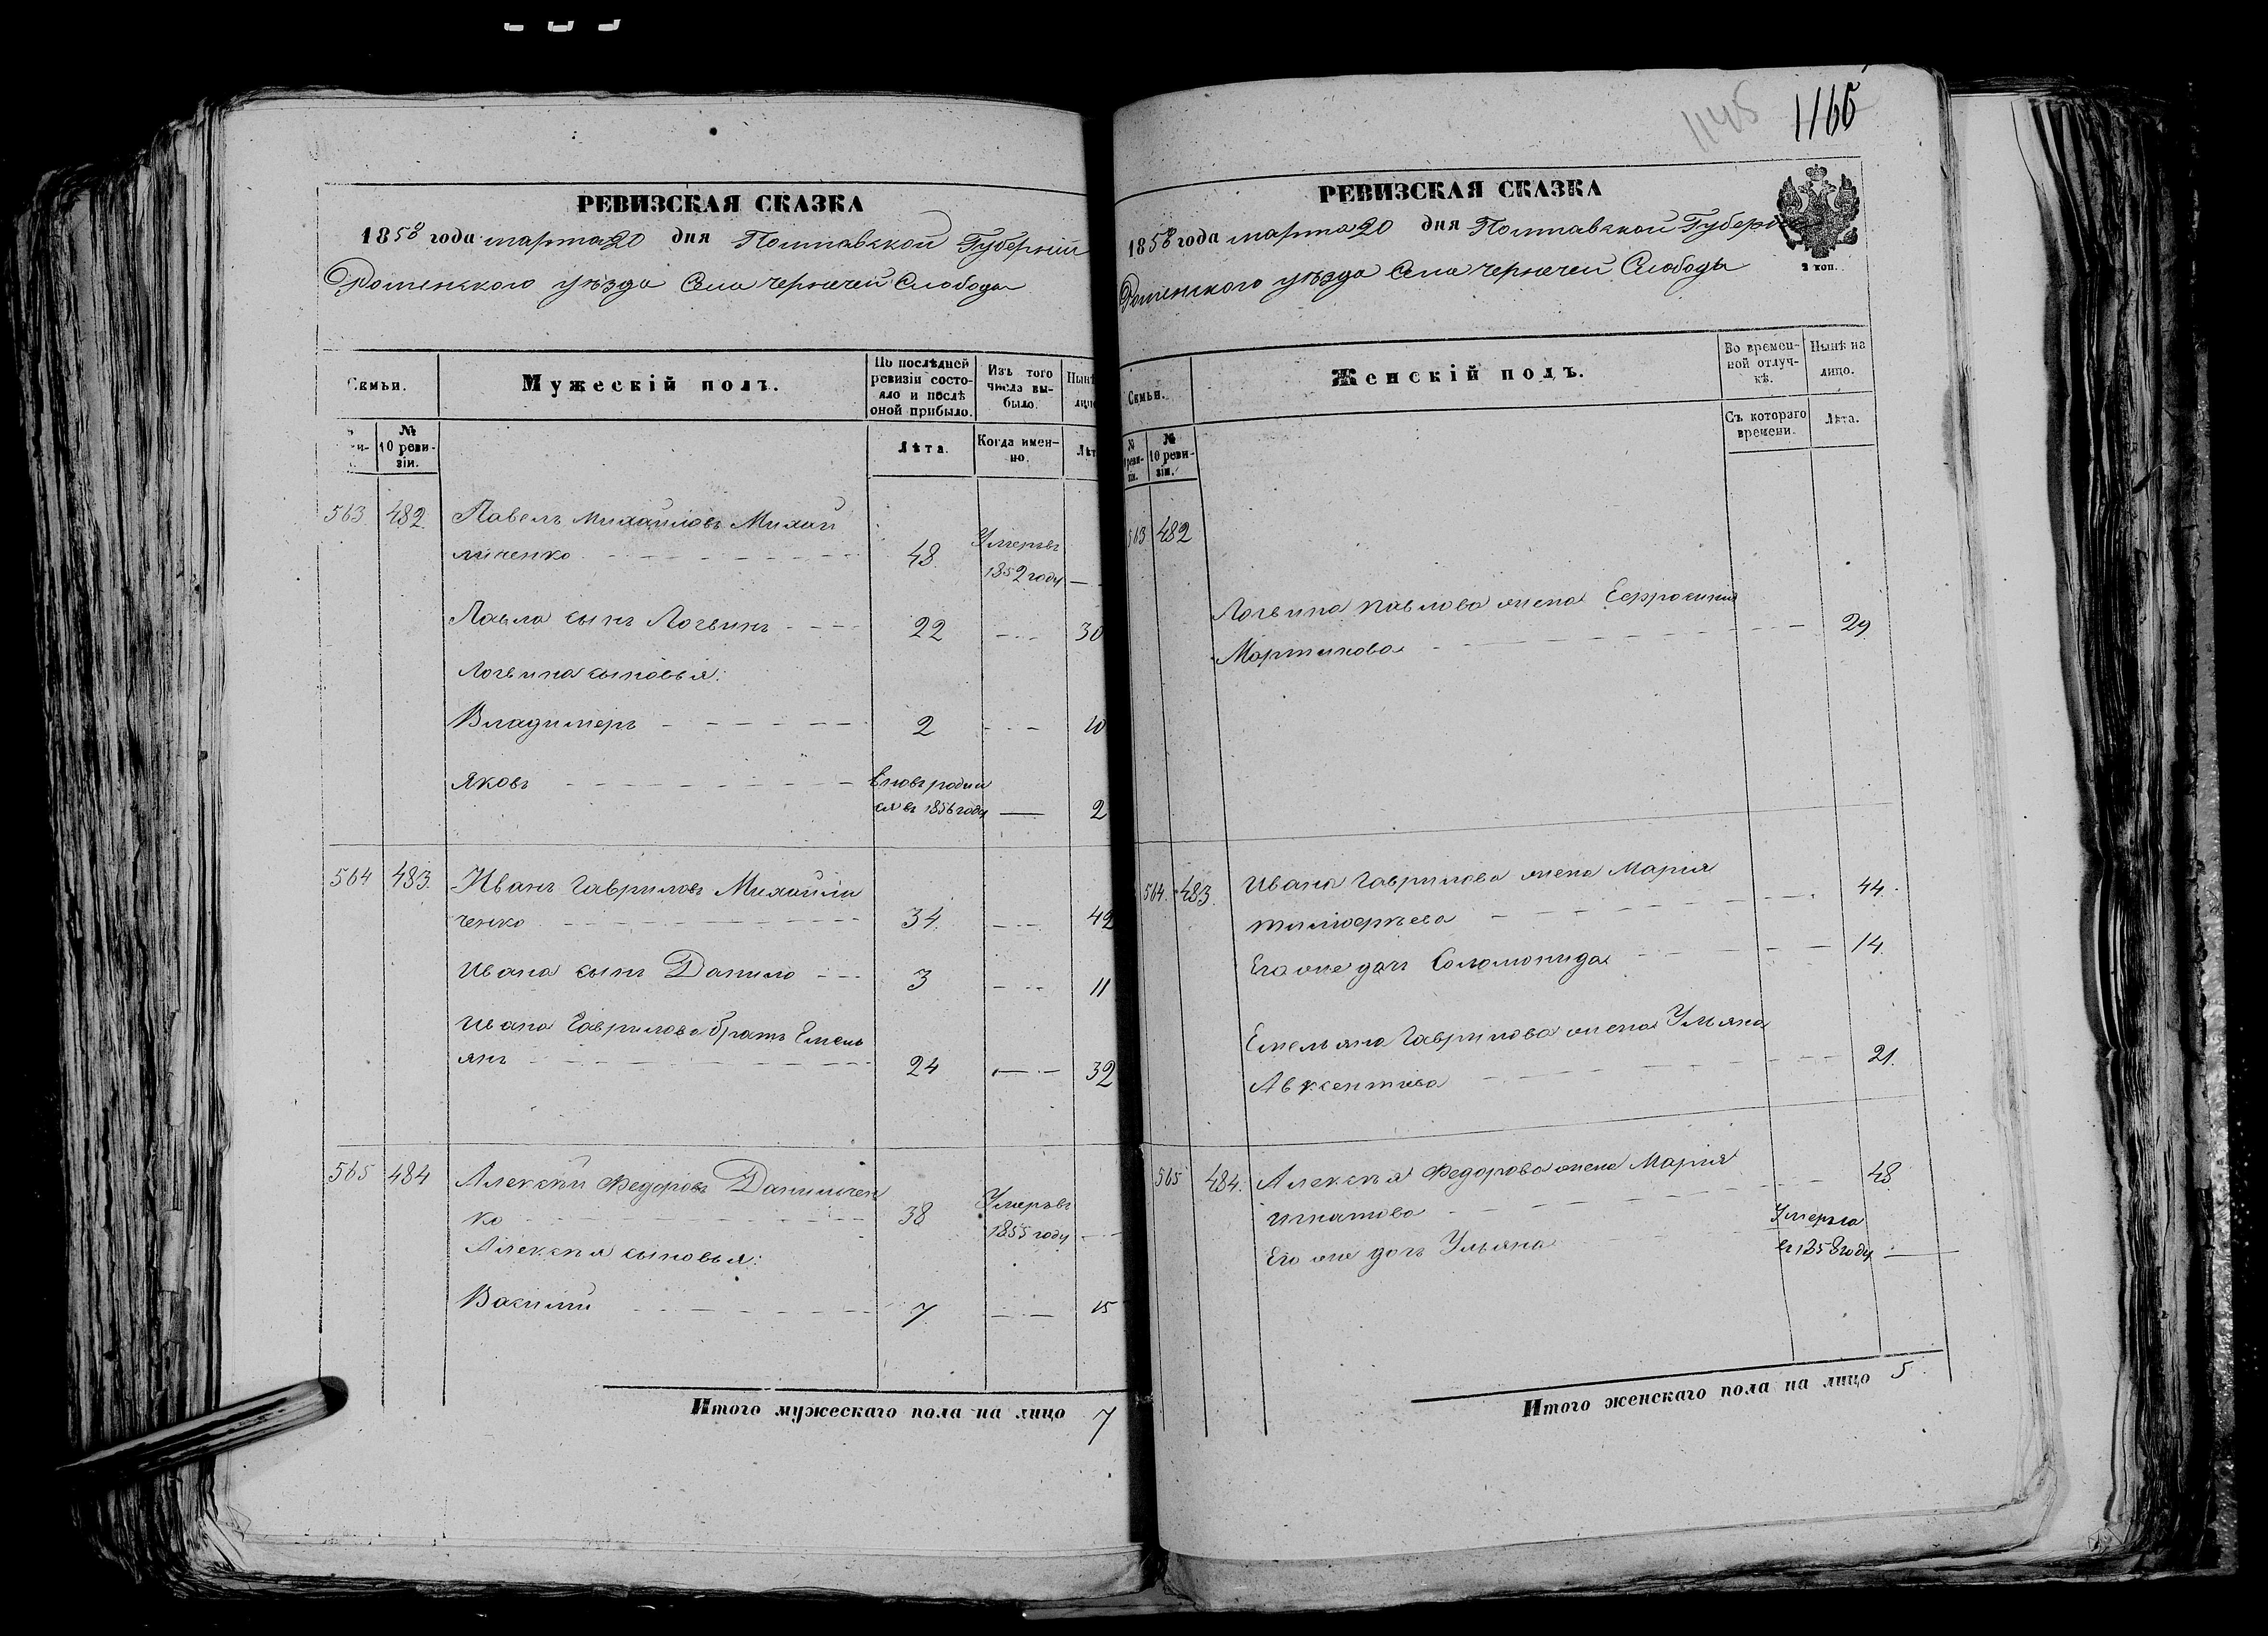 РЕВИЗСКАЯ СКАЗКА
1858 года марта 20 дня Полтавской Губерніи
Роменского уѣзда Села Чернечей Слободы
Семьи.
Мужескій полъ.
По послѣдней ревизіи состояло и послѣ оной прибыло.
Изъ того числа выбыло.
Нынѣ
лицо
№ 10 ревизіи.
Лѣта.
Когда именно.
Лѣт
563 482 Павелъ Михайловъ Михай
личенко 48 Умеръ въ
1852 году —
Павла сынъ Логвинъ 22 30
Логвина сыновья:
Владимеръ 2 10
Яковъ вновь родил
ся въ 1856 году — 2
564 483. Иванъ Гавриловъ Михайли
ченко 34. 42
Ивана сынъ Данило 3 11
Ивана Гаврилова братъ Емель
янъ 24 32
565 484 Алексѣй Федоровъ Данильчен
ко 38 Умеръ въ
1855 году —
Алексѣя сыновья:
Василий 7 15
Итого мужескаго пола на лицо 7
1145 1166
РЕВИЗСКАЯ СКАЗКА
1858 года марта 20 дня Полтавской Губерн
2 коп.
Роменского уѣзда Села Чернечей Слободы
Семьи.
Женскій полъ.
Во временной отлучкѣ.
Нынѣ на лицо.
№ 10 ревизіи.
Съ котораго времени.
Лѣта.
563 482
Логвина Павлова жена Ефросиния
Мартинова 29
564. 483. Ивана Гаврилова жена Мария
Тимофеева 44.
Его же дочь Соломонида 14.
Емельяна Гаврилова жена Ульяна
Авксентиева 21.
565 484. Алексѣя Федорова жена Мария
Игнатова 48
Его же дочь Ульяна Умерла
въ 1858 году —
Итого женскаго пола на лицо 5.